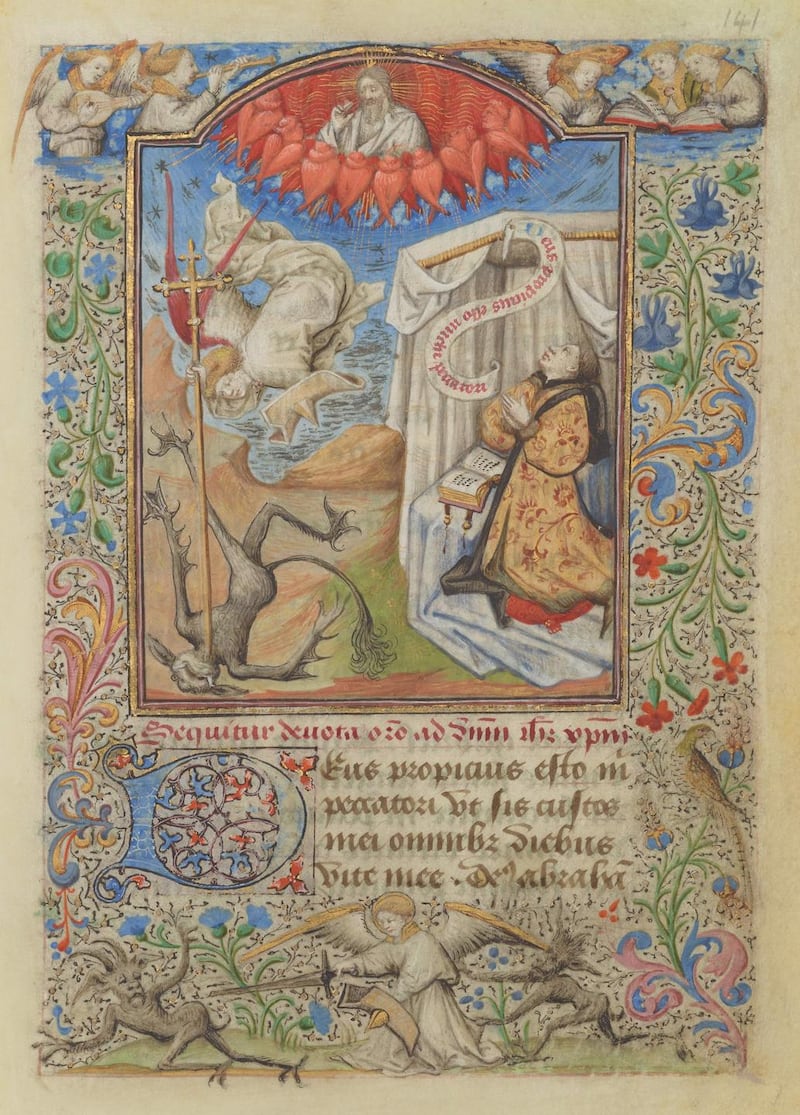 141
eus propicius esto michi peccatori
Sequitur deuota oro ad dnm ihm xpm
Deus propicius esto m
peccatori vt sis custos
mei omnibz diebus
vite mee . de abraha